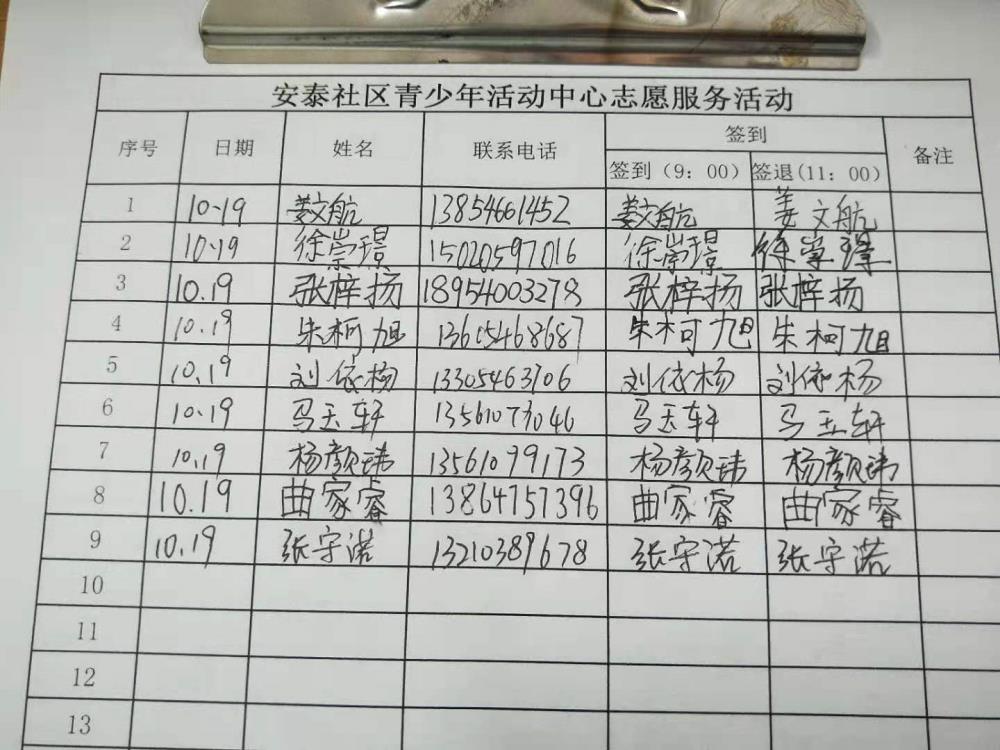 安泰社区青少年活动中心志愿服务活动
序号 日期 姓名 联系电话 签到 备注
签到（9：00） 签退(11：00)
1 10-19 姜文航 13854661452 姜文航 姜文航
2 10.19 徐崇璟 15020597016 徐崇璟 徐崇璟
3 10.19 张梓扬 18954003278 张梓扬 张梓扬
4 10.19 朱柯旭 13605468687 朱柯旭 朱柯旭
5 10.19 刘依杨 13305463706 刘依杨 刘依杨
6 10.19 马玉轩 13561073046 马玉轩 马玉轩
7 10.19 杨颜玮 13561099173 杨颜玮 杨颜玮
8 10.19 曲家睿 13864757396 曲家睿 曲家睿
9 10.19 张宇诺 13210389678 张宇诺 张宇诺
10
11
12
13